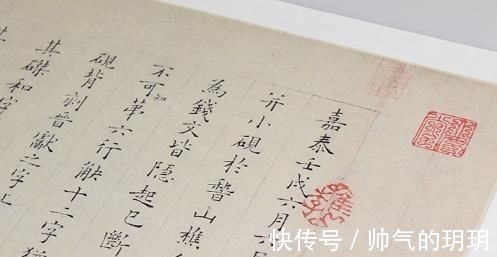 嘉泰壬戌六月六
并小硯於稽山樵
為錢文皆隱起已斷
不可知第六行缺十二字猶
硯背刻晉獻之字上
其
快传号 / 帅气的玥玥